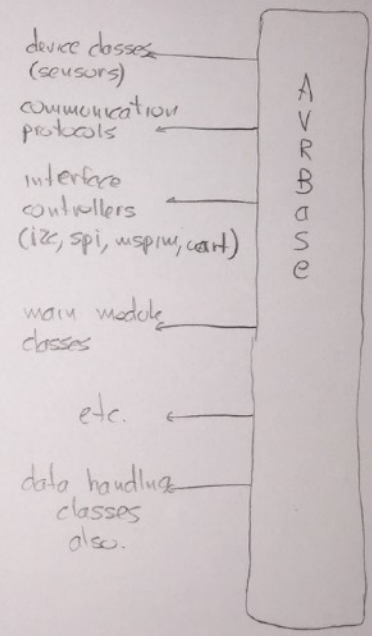 device classes
(sensors)
communication
protocols
interface
controllers
(i2c, spi, mspim, uart)
main module
classes
etc.
data handling
classes
also.
AVRBase